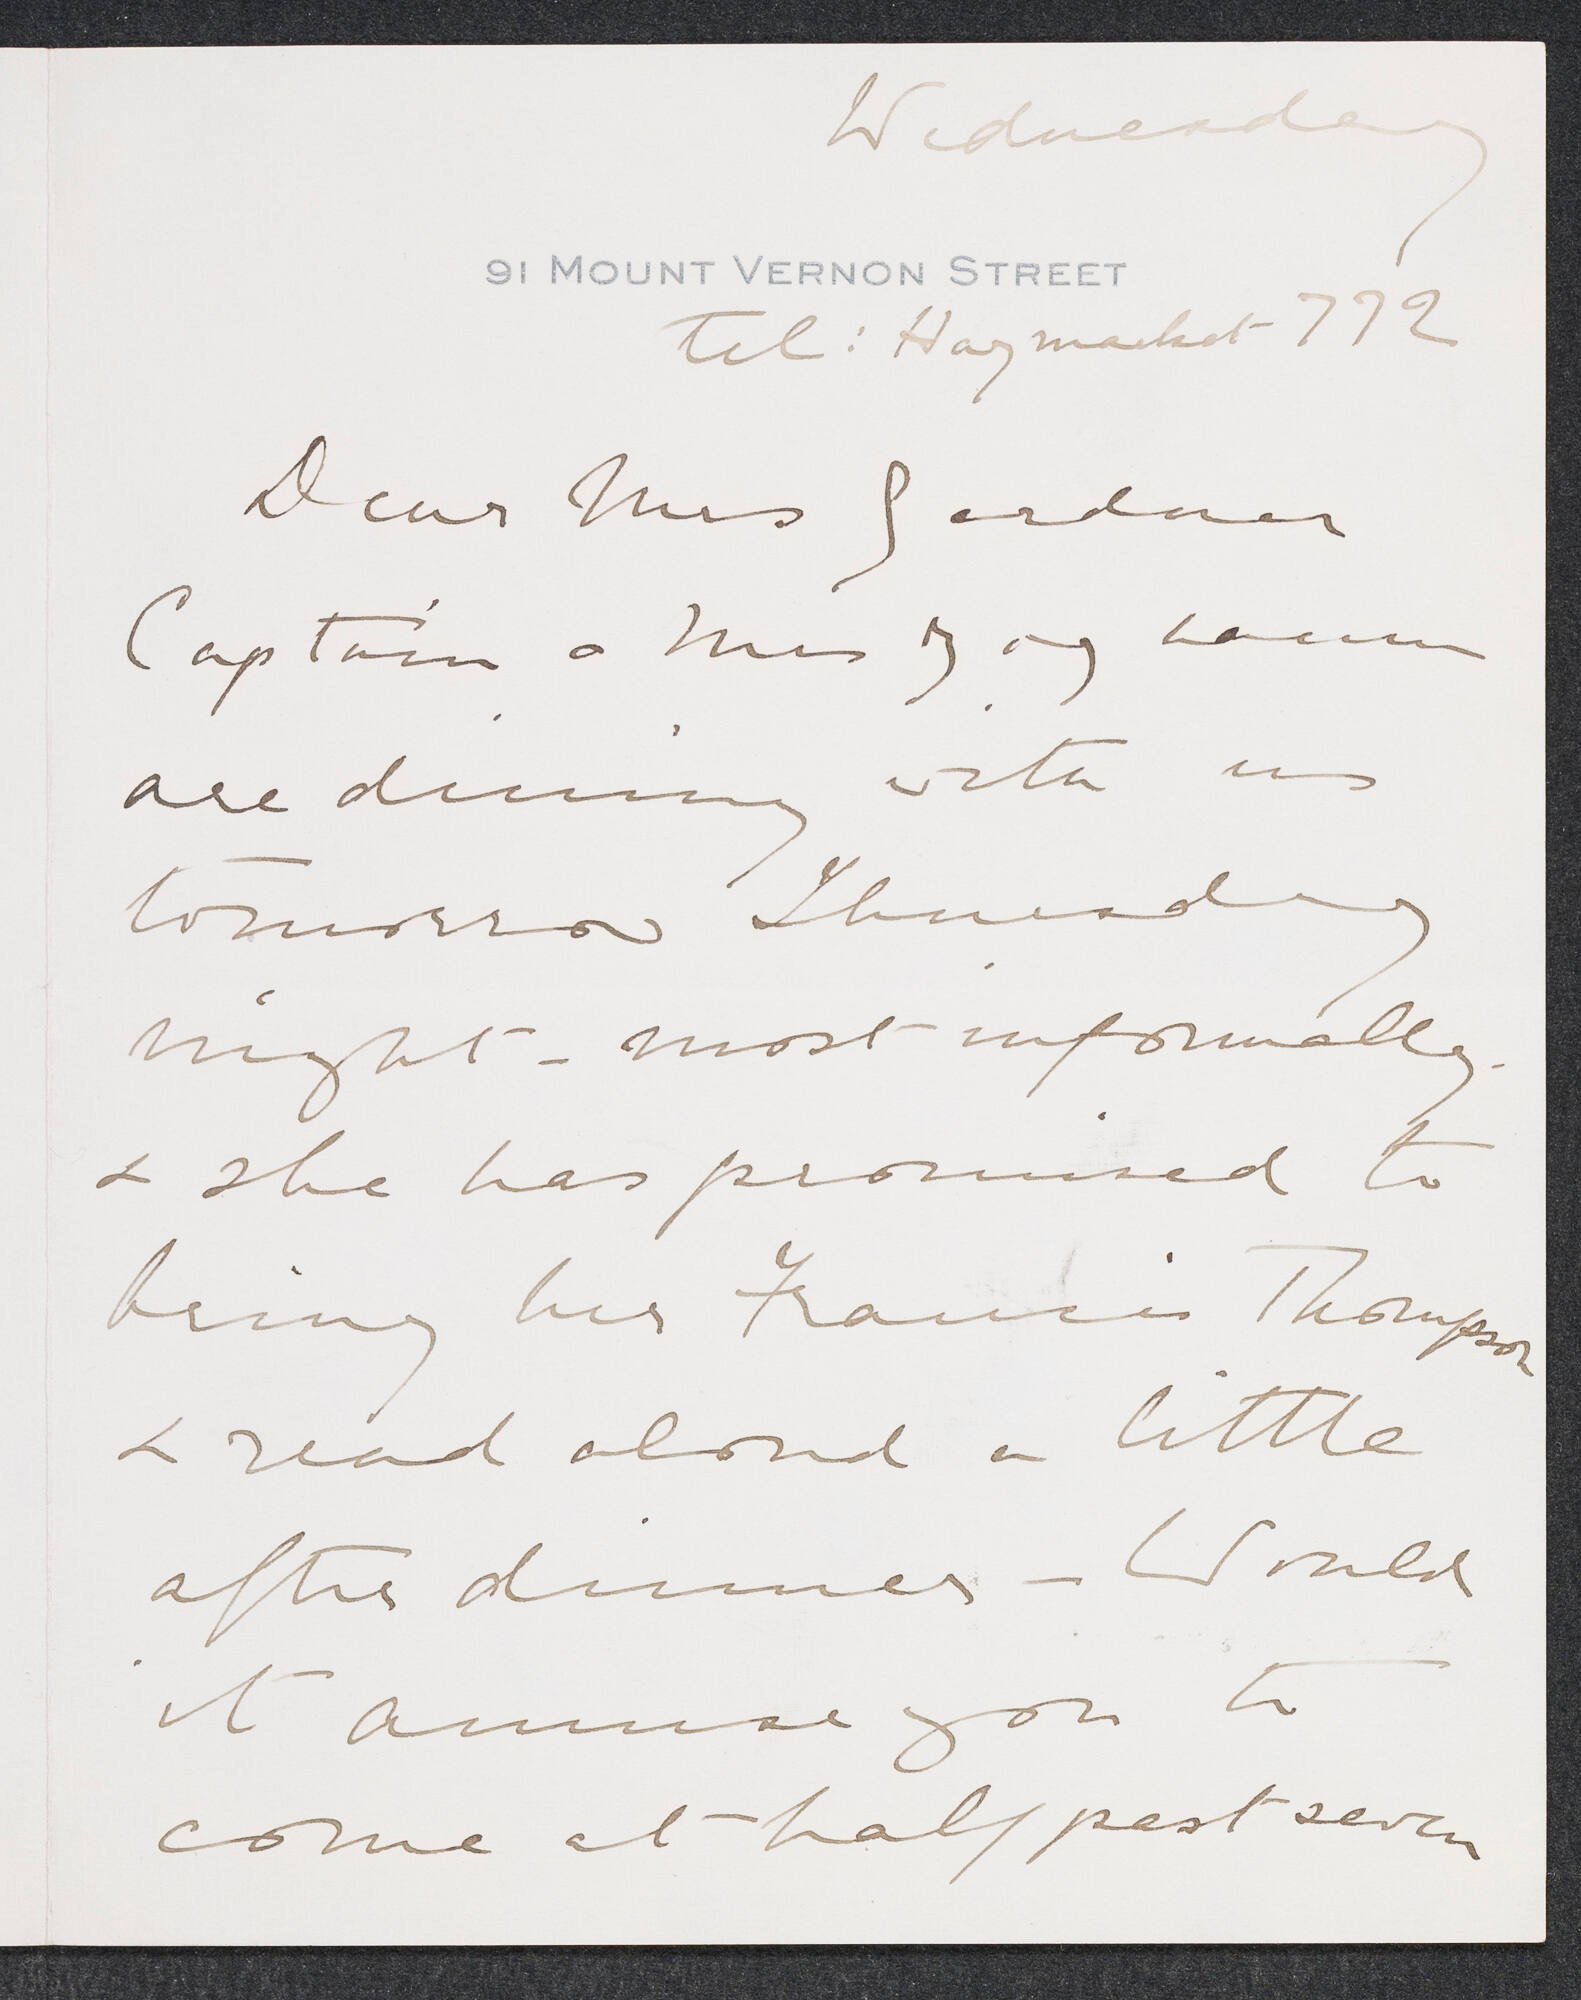 Wednesday
91 MOUNT VERNON STREET
Tel: Haymarket 772
Dear Mrs Gardner
Captain & Mrs
are dining with us
tomorrow Thursday
night - most informally -
& she has promised to
bring her Francis Thompson
& read aloud a little
after dinner - Would
it amuse you to
come at half past seven